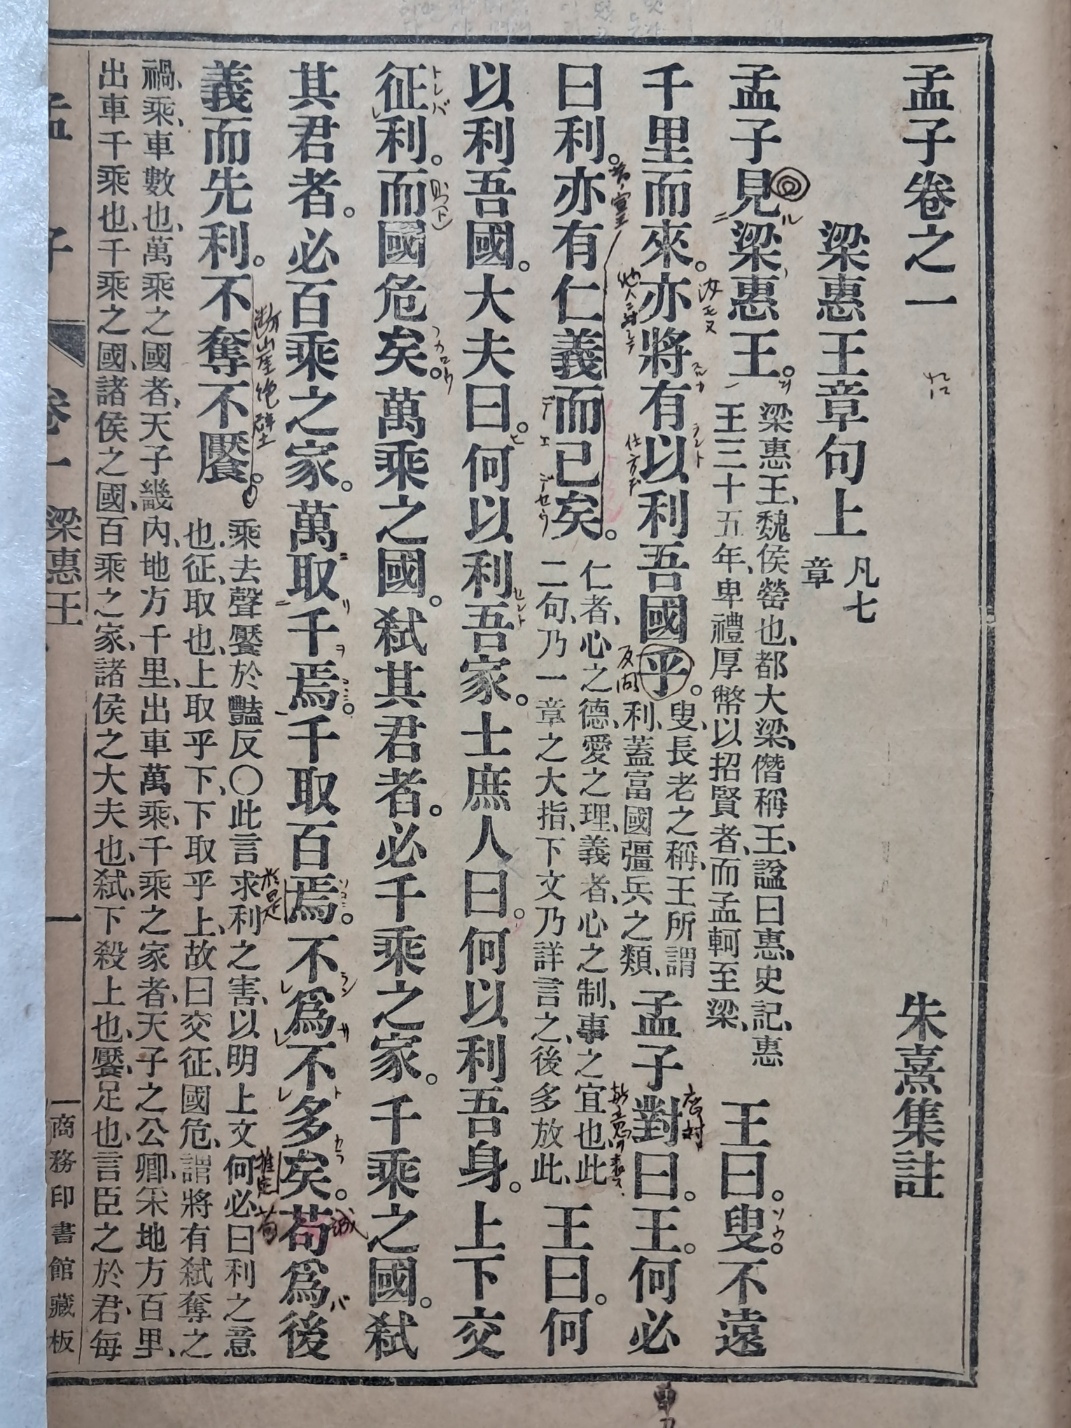 孟子卷之一
朱熹集註
梁惠王章句上
凡七
章
孟子見梁惠王。
梁惠王、魏侯罃也、都大梁、僭稱王、諡曰惠、史記、惠
王三十五年、卑禮厚幣以招賢者、而孟軻至梁、
王曰。叟。不遠
千里而來。亦將有以利吾國乎。
叟、長老之稱、王所謂
利、蓋富國彊兵之類、
孟子對曰。王。何必
曰利。亦有仁義而已矣。
仁者、心之德、愛之理、義者、心之制、事之宜也、此
二句、乃一章之大指、下文乃詳言之、後多放此、
王曰。何
以利吾國。大夫曰。何以利吾家。士庶人曰。何以利吾身。上下交
征利。而國危矣。萬乘之國。弒其君者。必千乘之家。千乘之國。弒
其君者。必百乘之家。萬取千焉。千取百焉。不爲不多矣。苟爲後
義而先利。不奪不饜。
乘去聲饜於豔反〇此言求利之害、以明上文何必曰利之意
也、征、取也、上取乎下、下取乎上、故曰交征、國危、謂將有弒奪之
禍、乘、車數也、萬乘之國者、天子畿內、地方千里、出車萬乘、千乘之家者、天子之公卿、采地方百里、
出車千乘也、千乘之國、諸侯之國、百乘之家、諸侯之大夫也、弒、下殺上也、饜、足也、言臣之於君、每
孟子
卷一
梁惠王
一
商務印書館藏板